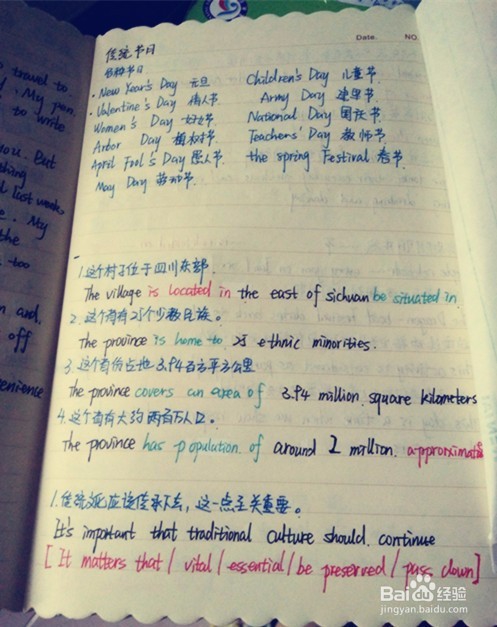 Date.
NO.
传统节日
各种节日
· New Year's Day 元旦 Children's Day 儿童节
· Valentine's Day 情人节 Army Day 建军节
Women's Day 妇女节 National Day 国庆节
Arbor Day 植树节 Teachers' Day 教师节
April Fool's Day 愚人节 the spring Festival 春节
May Day 劳动节
1. 这个村子位于四川东部.
The village is located in the east of sichuan be situated in
2. 这个省有25个少数民族。
The province is home to 25 ethnic minorities.
3. 这个省份占地 3.94百万平方公里
The province covers an area of 3.94 million square kilometers
4. 这个省有大约两百万人口。
The province has population of around 2 million. approximat
1. 传统文化应该传承下去, 这一点至关重要。
It's important that traditional culture should continue
[It matters that / vital / essential / be preserved / pass down]
travel to
My pen.
to write
you. But
thing
last week
My
the
too
and.
off
venience
Baidu 经验
jingyan.baidu.com